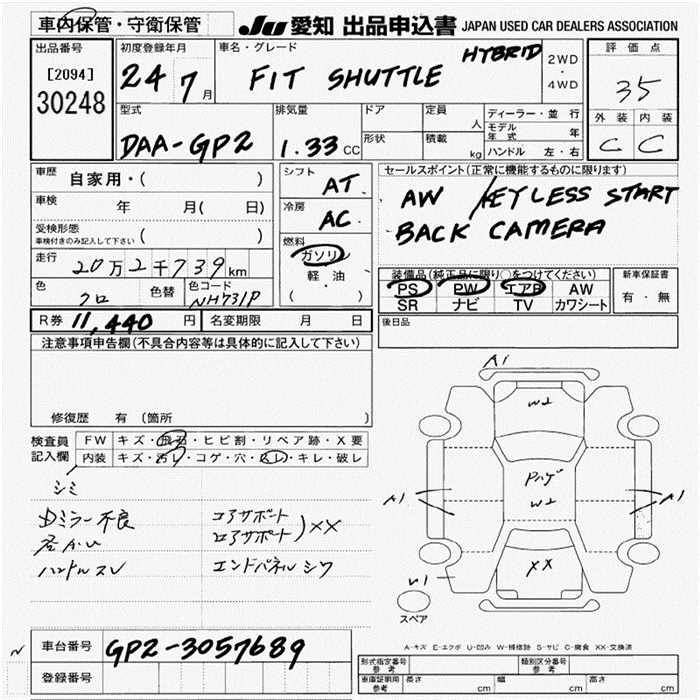 車内保管・守衛保管
JU 愛知 出品申込書 JAPAN USED CAR DEALERS ASSOCIATION
出品番号
[2094]
30248
初度登録年月
24 7月
車名・グレード
FIT SHUTTLE HYBRID
2WD
・
4WD
評価点
35
外装 内装
C C
型式
DAA-GP2
排気量
1.33 CC
ドア
形状
定員 人
積載 kg
ディーラー・並行
モデル年式 年
ハンドル 左・右
車歴 自家用・( )
車検 年 月( 日)
受検形態
車検付きのみ記入して下さい ( )
走行 20万2千739km
色 クロ 色替 色コード NH731P
シフト AT
冷房 AC
燃料
ガソリン
軽・油
( )
セールスポイント(正常に機能するものに限ります)
AW / KEYLESS START
BACK CAMERA
装備品(純正品に限り○をつけてください)
PS PW エアB AW
SR ナビ TV カワシート
新車保証書
有・無
R券 11,440 円 名変期限 月 日
後日品
注意事項申告欄(不具合内容等は具体的に記入して下さい)
修復歴 有 (箇所
検査員
記入欄
FW キズ・飛石・ヒビ割・リペア跡・X要
内装 キズ・汚レ・コゲ・穴・スレ・キレ・破レ
シミ
Dミラー不良
コアサポート
ロアサポート
) XX
ハンドルスレ
エンドパネルシワ
A1
W2
Pハゲ
W2
A1
A1
XX
W1
スペア
A-キズ E-エクボ U-凹み W-補修跡 S-サビ C-腐食 XX-交換済
車台番号 GP2-3057689
登録番号
型式指定番号
参考
類別区分番号
参考
車庫証明用
参考
長さ cm 幅 cm 高さ cm